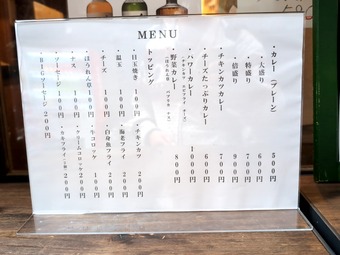 MENU
・カレー（プレーン） 500円
・大盛り 600円
・特盛り 700円
・倍盛り 900円
・チキンカツカレー 700円
・チーズたっぷりカレー 600円
・パワーカレー 1000円
・野菜カレー 800円
トッピング
・目玉焼き 100円
・温玉 100円
・チーズ 100円
・ほうれん草 100円
・ナス 100円
・ソーセージ 100円
・BIGソーセージ 200円
・チキンカツ 200円
・海老フライ 200円
・白身魚フライ 200円
・牛コロッケ 100円
・クリームコロッケ 200円
・カキフライ 200円